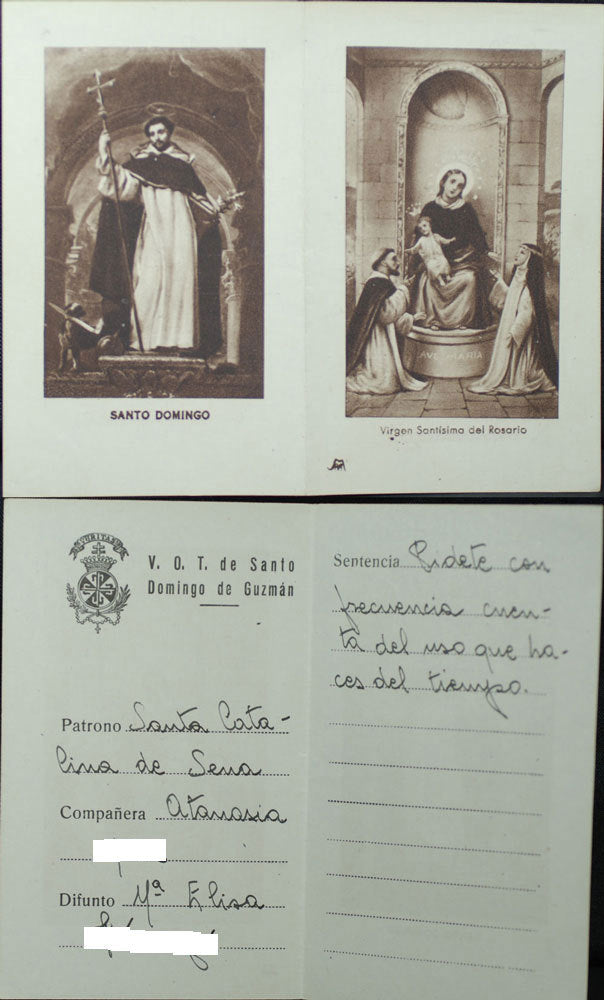 AVE MARIA
SANTO DOMINGO
Virgen Santísima del Rosario
VERITAS
V. O. T. de Santo
Domingo de Guzmán
Patrono Santa Cata-
lina de Sena
Compañera Atanasia
Difunto Mª Elisa
Sentencia Pidete con
frecuencia cuen-
ta del uso que ha-
ces del tiempo.